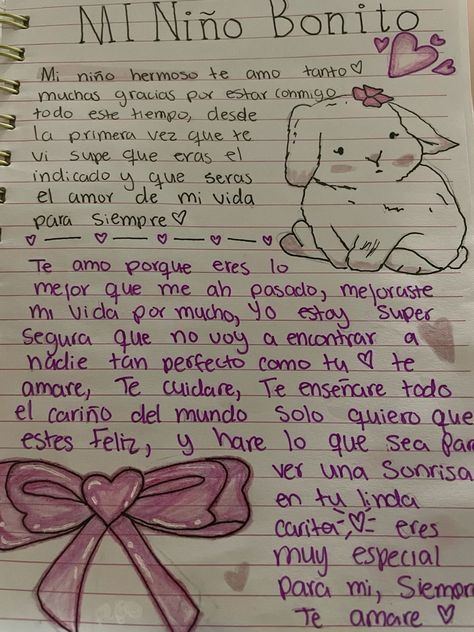 MI Niño Bonito
Mi niño hermoso te amo tanto♡
muchas gracias por estar conmigo
todo este tiempo, desde
la primera vez que te
vi supe que eras el
indicado y que seras
el amor de mi vida
para siempre♡
Te amo porque eres lo
mejor que me ah pasado, mejoraste
mi vida por mucho, Yo estoy super
segura que no voy a encontrar a
nadie tan perfecto como tu ♡ te
amare, Te cuidare, Te enseñare todo
el cariño del mundo solo quiero que
estes Feliz, y hare lo que sea para
ver una Sonrisa
en tu linda
carita, ♡ eres
muy especial
para mi, Siempre
Te amare ♡